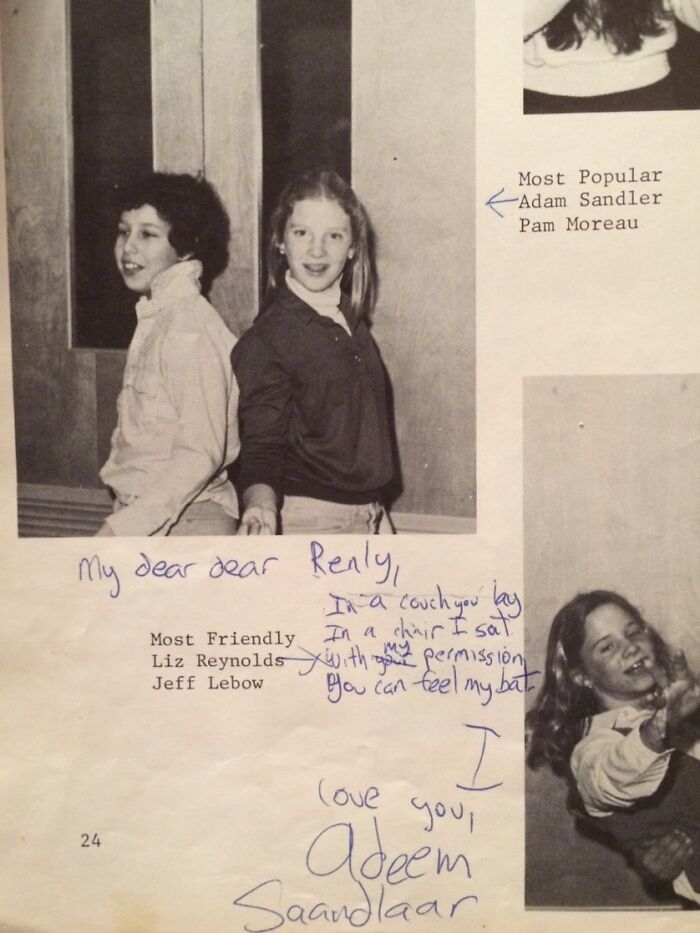 Most Popular
Adam Sandler
Pam Moreau
My dear dear Renly,
In a couch you lay
In a chair I sat
With your my permission
You can feel my bat
Most Friendly
Liz Reynolds
Jeff Lebow
I
love you,
Adeem
Saandlaar
24